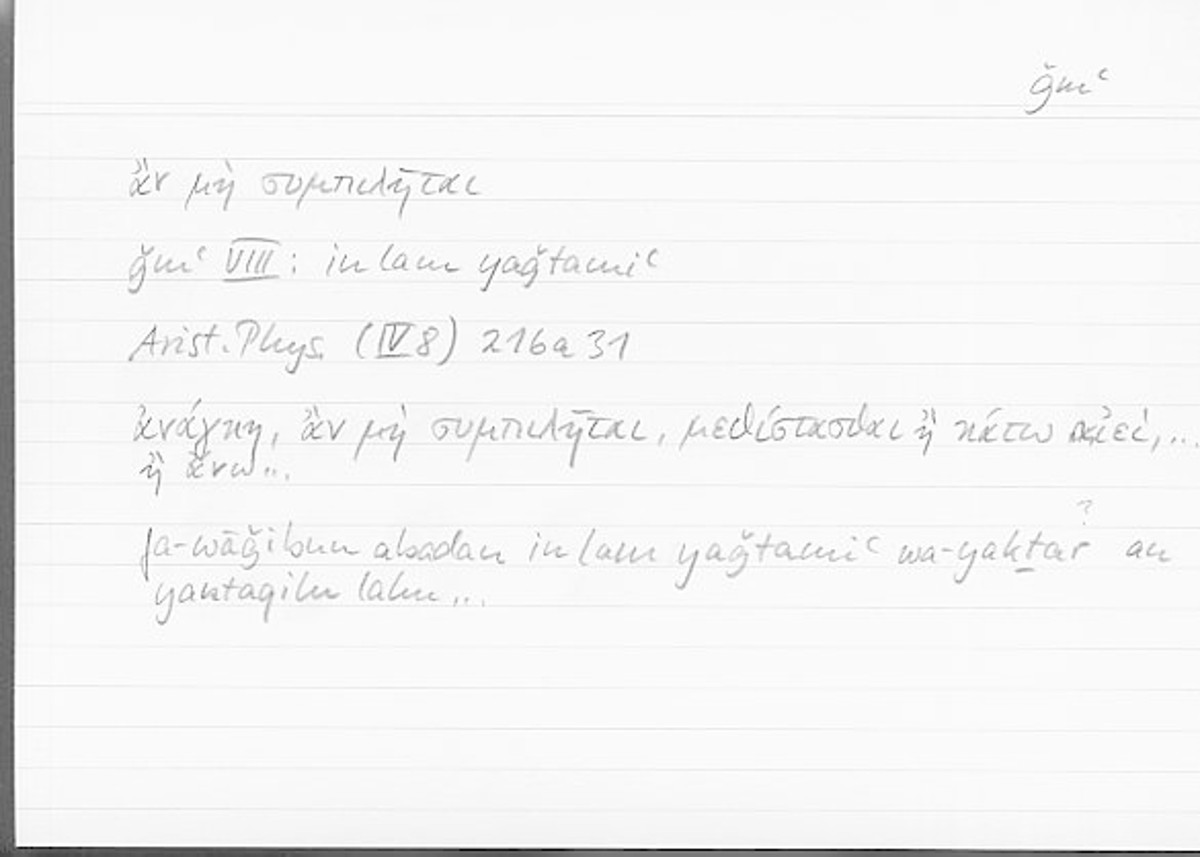 ǧmʿ
ἂν μὴ συμπιλῆται
ǧmʿ VIII: in lam yaǧtamiʿ
Arist. Phys. (IV 8) 216a 31
ἀνάγκη, ἂν μὴ συμπιλῆται, μεθίστασθαι ἢ κάτω αἰεί, ...
ἢ ἄνω...
fa-wāǧibun abadan in lam yaǧtamiʿ wa-yaktar? an
yantaqilu lahu...